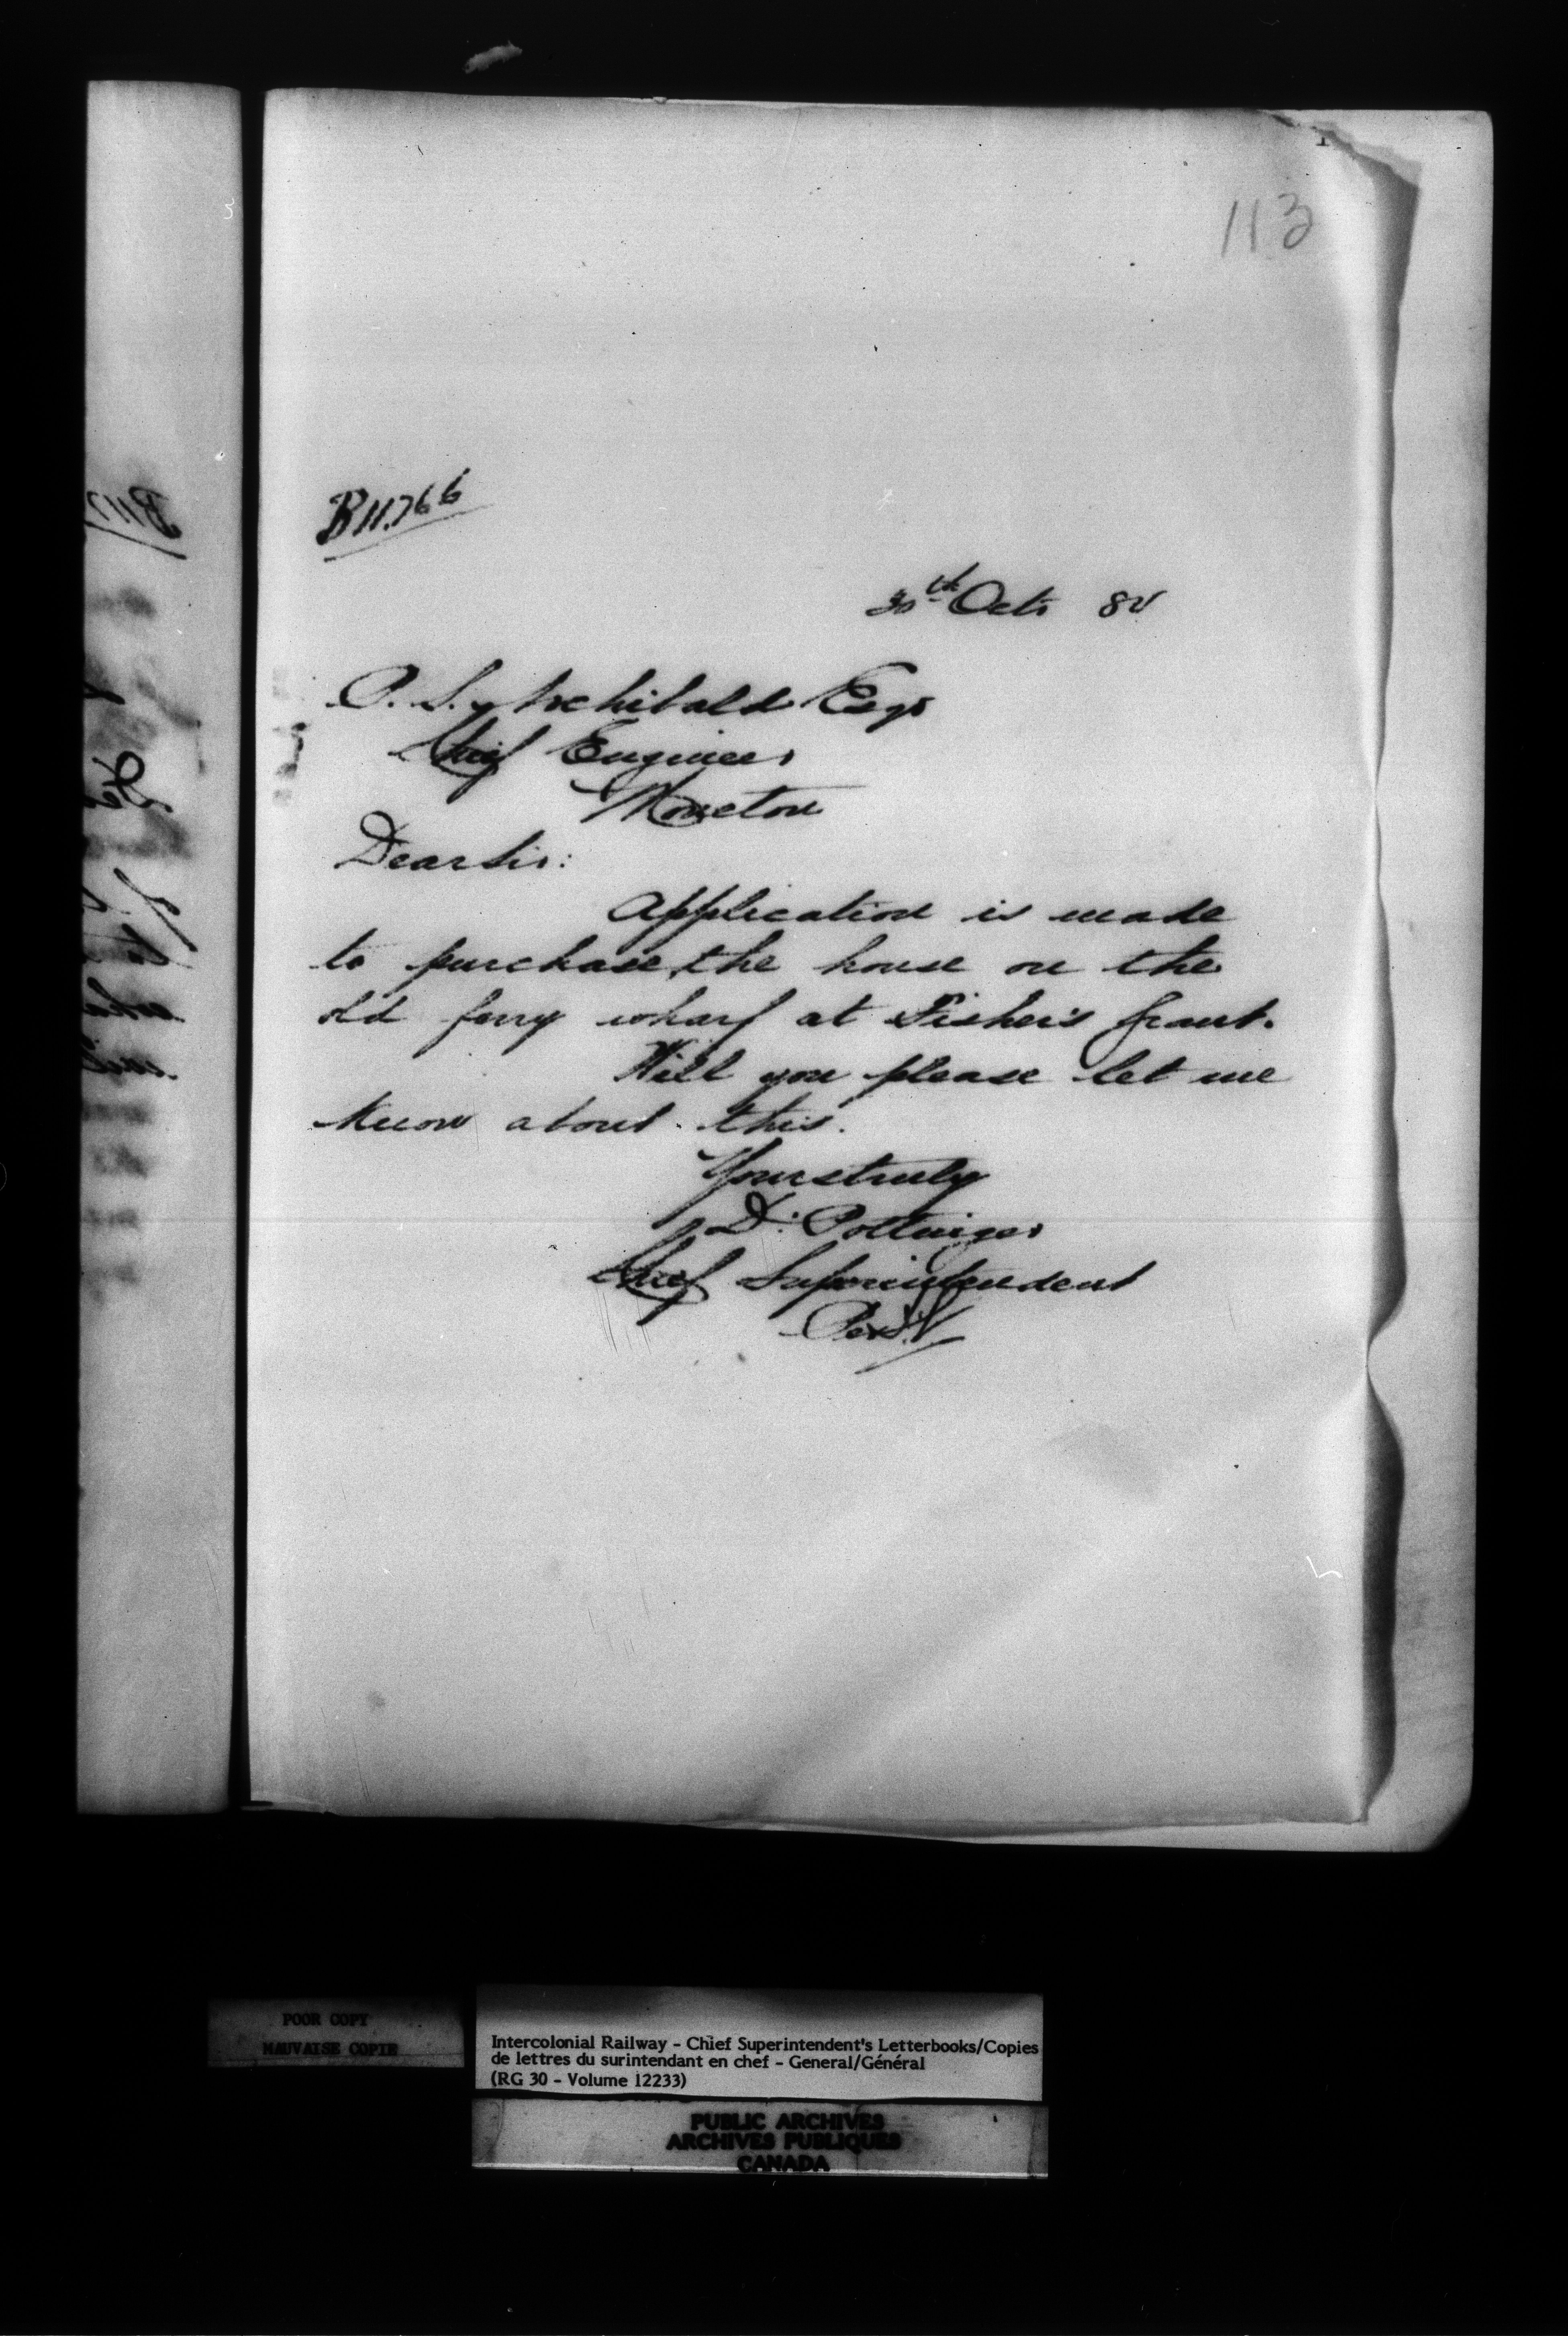 113
B11.766
30th Octr 82
P. S. Archibald Esqr
Chief Engineer
Moncton
Dear Sir:
Application is made
to purchase the house on the
old ferry wharf at Fisher's Grant.
Will you please let me
know about this.
Yours truly
D. Pottinger
Chief Superintendent
Per
POOR COPY
MAUVAISE COPIE
Intercolonial Railway - Chief Superintendent's Letterbooks/Copies
de lettres du surintendant en chef - General/Général
(RG 30 - Volume 12233)
PUBLIC ARCHIVES
ARCHIVES PUBLIQUES
CANADA